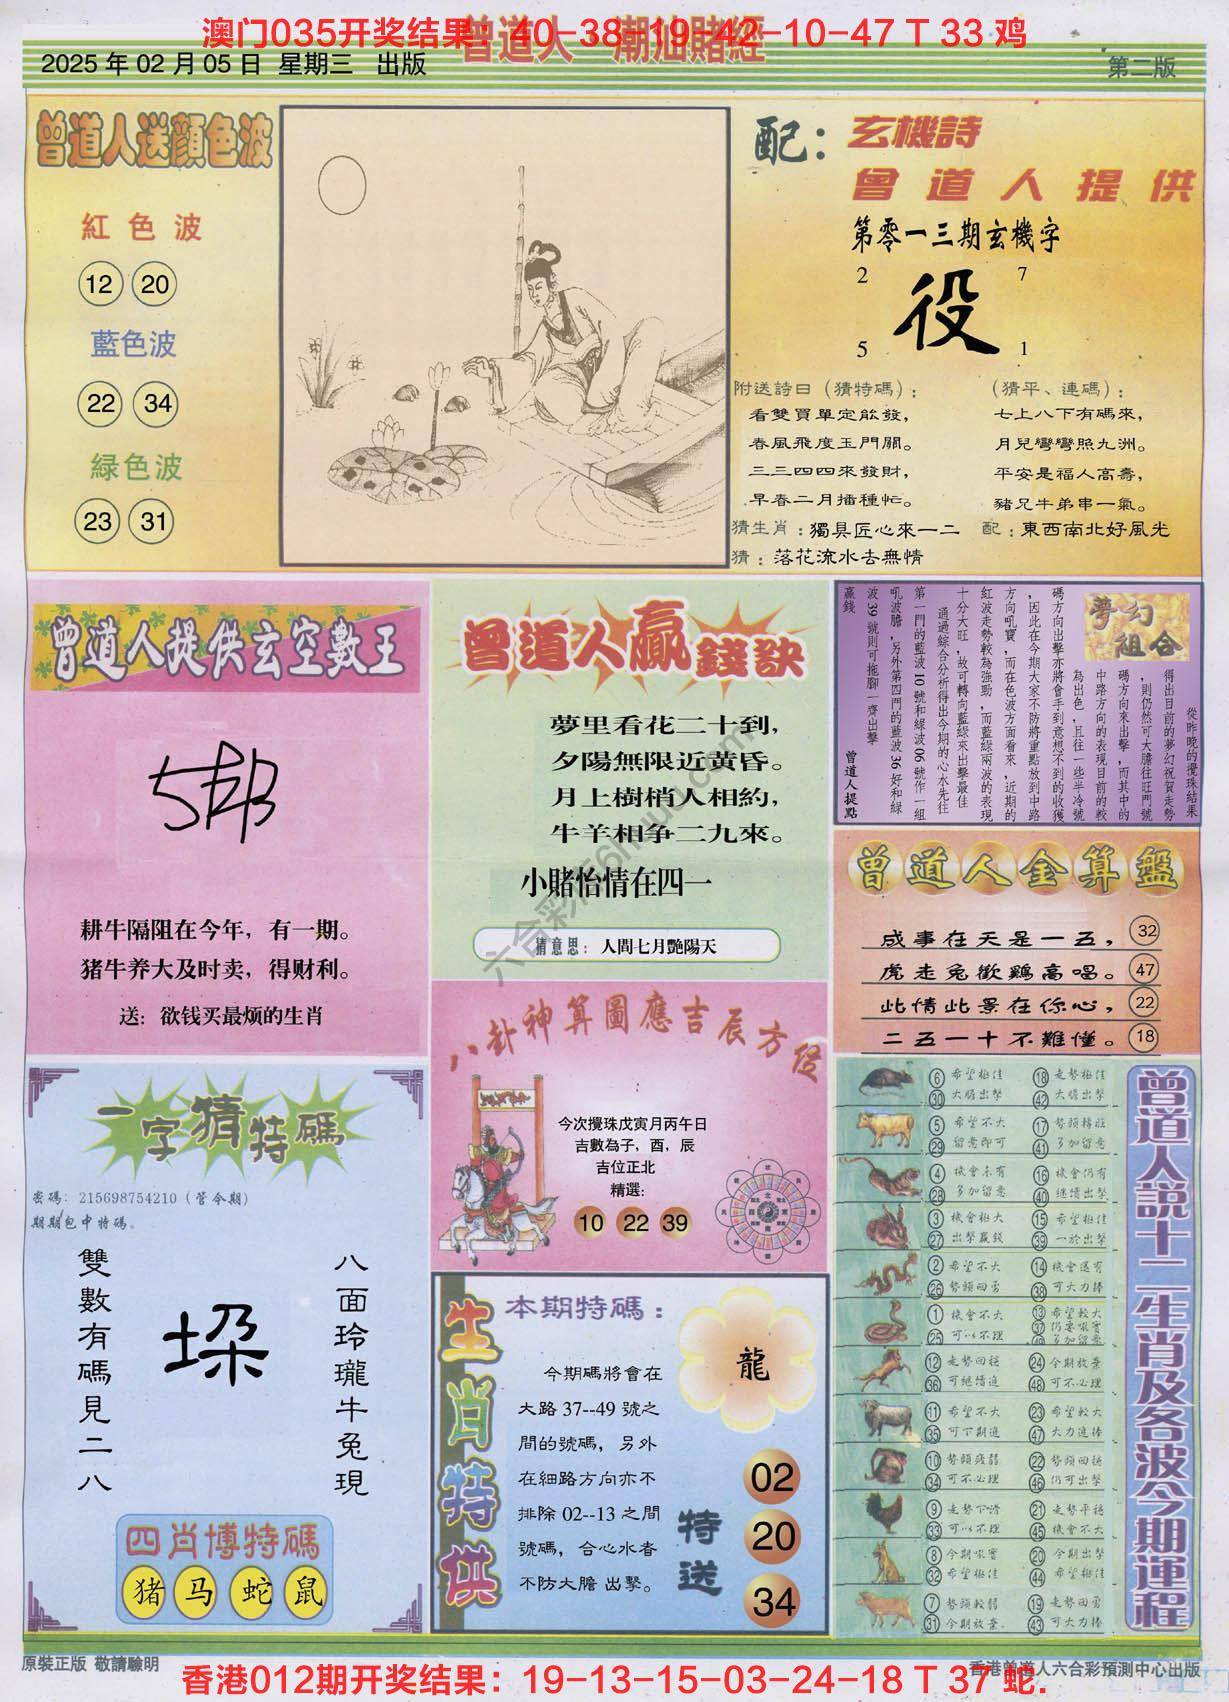 澳门035开奖结果：40-38-19-42-10-47 T 33 鸡
曾道人 潮汕賭經
2025 年 02 月 05 日 星期三 出版
第二版
曾道人送顏色波
紅色波
12 20
藍色波
22 34
綠色波
23 31
配：
玄機詩
曾道人提供
第零一三期玄機字
2 7
役
5 1
附送詩曰（猜特碼）：
看雙買單定能發，
春風飛度玉門關。
三三四四來發財，
早春二月播種忙。
（猜平、連碼）：
七上八下有碼來，
月兒彎彎照九洲。
平安是福人高壽，
豬兄牛弟串一氣。
猜生肖：獨具匠心來一二
配：東西南北好風光
猜：落花流水去無情
曾道人提供玄空數王
耕牛隔阻在今年，有一期。
猪牛养大及时卖，得财利。
送：欲钱买最烦的生肖
曾道人贏錢訣
夢里看花二十到，
夕陽無限近黃昏。
月上樹梢人相約，
牛羊相争二九來。
小賭怡情在四一
猜意思：人間七月艷陽天
夢幻組合
從昨晚的攪珠結果
得出目前的夢幻祝賀走勢
，則仍然可大膽往旺門號
碼方向來出擊，而其中的
中路方向的表現目前的較
為出色，且往一些半冷號
碼方向出擊亦將會手到意想不到的收獲
，因此在今期大家不防將重點放到中路
方向吼寶，而在色波方面看來，近期的
紅波走勢較為強勁，而藍綠兩波的表現
十分大旺，故可轉向藍綠來出擊最佳
通過綜合分析得出今期的心水先往
第一門的藍波 10 號和綠波 06 號作一組
吼波膽，另外第四門的藍波 36 好和綠
波 39 號則可拖腳一齊出擊
贏錢
曾道人提點
曾道人金算盤
成事在天是一五， 32
虎走兔歡鷄高唱。 47
此情此景在你心， 22
二五一十不難懂。 18
八卦神算圖應吉辰方位
今次攪珠戊寅月丙午日
吉數為子，酉，辰
吉位正北
精選：
10 22 39
一字猜特碼
密碼：215698754210（管今期）
期期包中特碼。
雙數有碼見二八
垛
八面玲瓏牛兔現
四肖博特碼
猪 马 蛇 鼠
生肖特供
本期特碼：
龍
今期碼將會在
大路 37--49 號之
間的號碼，另外
在細路方向亦不
排除 02--13 之間
號碼，合心水者
不防大膽 出擊。
特送
02
20
34
曾道人說十二生肖及各波今期運程
6 希望極佳 18 走勢極佳
30 大膽出擊 42 大膽出擊
5 希望不大 17 勢頭轉旺
29 留意即可 41 多加留意
4 機會未有 16 機會仍有
28 多加留意 40 繼續出擊
3 機會極大 15 希望極佳
27 出擊贏錢 39 一於出擊
2 希望不大 14 機會還有
26 勢頭回勇 38 可大力捧
1 機會不大 13 希望較大
25 可以不理 37 仍要吼實
49 多加留意
12 走勢回穩 24 今期放棄
36 可繼續追 48 可不必理
11 希望不大 23 希望較大
35 可下期追 47 大力追捧
10 勢頭疲弱 22 勢頭回穩
34 可不必理 46 仍可出擊
9 走勢下滑 21 走勢平穩
33 可以不理 45 機會不大
8 今期吼實 20 今期出擊
32 希望極佳 44 希望極佳
7 勢頭較弱 19 走勢回勇
31 今期放棄 43 可大力捧
原裝正版 敬請驗明
香港曾道人六合彩預測中心出版
香港012期开奖结果：19-13-15-03-24-18 T 37 蛇.